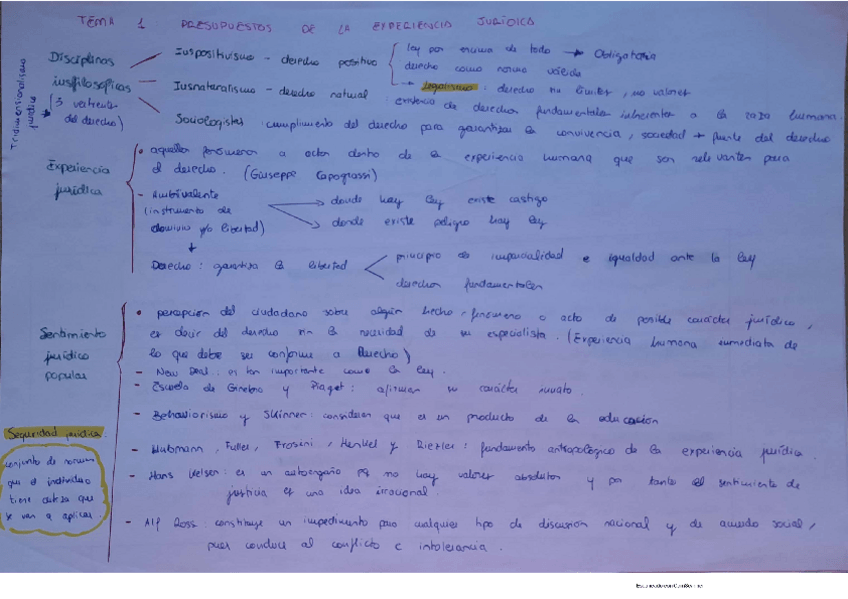 TEMA 1 PRESUPUESTOS DE LA EXPERIENCIA JURÍDICA
Tridimensionalismo jurídico
Disciplinas iusfilosóficas
(3 vertientes del derecho)
Iuspositivismo - derecho positivo
ley por encima de todo → Obligatoria
derecho como norma válida
→ Legalismo: derecho no límites, no valores
Iusnaturalismo - derecho natural
existencia de derechos fundamentales inherentes a la raza humana.
Sociologistas: cumplimiento del derecho para garantizar la convivencia, sociedad → fuente del derecho
Experiencia jurídica
• aquellos fenómenos o actos dentro de la experiencia humana que son relevantes para
el derecho. (Giuseppe Capograssi)
- Ambivalente
(instrumento de
dominio y/o libertad)
→ donde hay ley existe castigo
→ donde existe peligro hay ley
Derecho: garantiza la libertad
principio de imparcialidad e igualdad ante la ley
derechos fundamentales
Sentimiento jurídico popular
• percepción del ciudadano sobre algún hecho, fenómeno o acto de posible carácter jurídico,
es decir del derecho sin la necesidad de ser especialista. (Experiencia humana inmediata de
lo que debe ser conforme a Derecho)
- New Deal: es tan importante como la ley.
- Escuela de Ginebra y Piaget: afirman su carácter innato.
- Behaviorismo y Skinner: consideran que es un producto de la educación
- Hubmann, Fuller, Frosini, Henkel y Riezler: fundamento antropológico de la experiencia jurídica.
- Hans Kelsen: es un autoengaño pq no hay valores absolutos y por tanto el sentimiento de
justicia es una idea irracional.
- Alf Ross: constituye un impedimento para cualquier tipo de discusión racional y de acuerdo social,
pues conduce al conflicto e intolerancia.
Seguridad jurídica:
conjunto de normas
que el individuo
tiene certeza que
se van a aplicar.
Escaneado con CamScanner